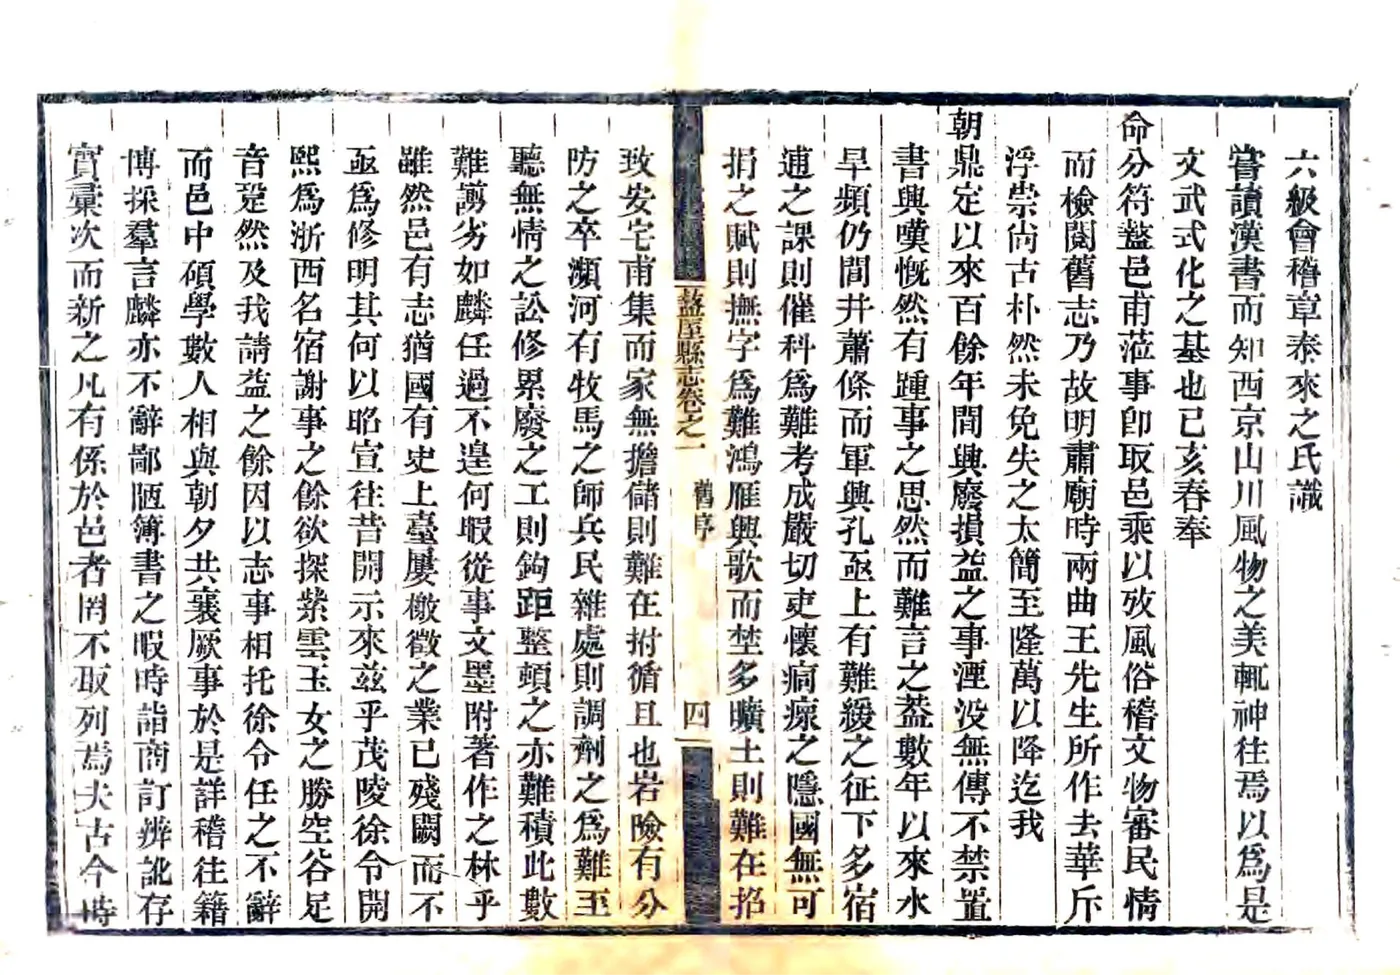 六級會稽章泰來之氏識
嘗讀漢書而知西京山川風物之美輒神往焉以為是
文武式化之基也己亥春奉
命分符盩邑甫蒞事卽取邑乘以攷風俗稽文物審民情
而檢閱舊志乃故明肅廟時兩曲王先生所作去華斥
浮崇尙古朴然未免失之太簡至隆萬以降迄我
朝鼎定以來百餘年間興廢損益之事湮沒無傳不禁置
書興嘆慨然有踵事之思然而難言之葢數年以來水
旱頻仍閭井蕭條而軍興孔亟上有難緩之征下多宿
逋之課則催科爲難考成嚴切吏懷痌瘝之隱國無可
捐之賦則撫字爲難鴻雁興歌而埜多曠土則難在招
盩厔縣志卷之一　舊序　四
攷安宅甫集而家無擔儲則難在拊循且也若險有分
防之卒瀕河有牧馬之師兵民雜處則調劑之爲難至
聽無情之訟修累廢之工則鉤距整頓之亦難積此數
難謭劣如麟任過不遑何暇從事文墨附著作之林乎
雖然邑有志猶國有史上臺屢檄徵之業已殘闕而不
亟爲修明其何以昭宣往昔開示來茲乎茂陵徐令開
熙爲浙西名宿謝事之餘欲探紫雲玉女之勝空谷足
音跫然及我請益之餘因以志事相托徐令任之不辭
而邑中碩學數人相與朝夕共襄厥事於是詳稽往籍
博採羣言麟亦不辭鄙陋簿書之暇時詣商訂辨訛存
實彙次而新之凡有係於邑者罔不取列焉夫古今時